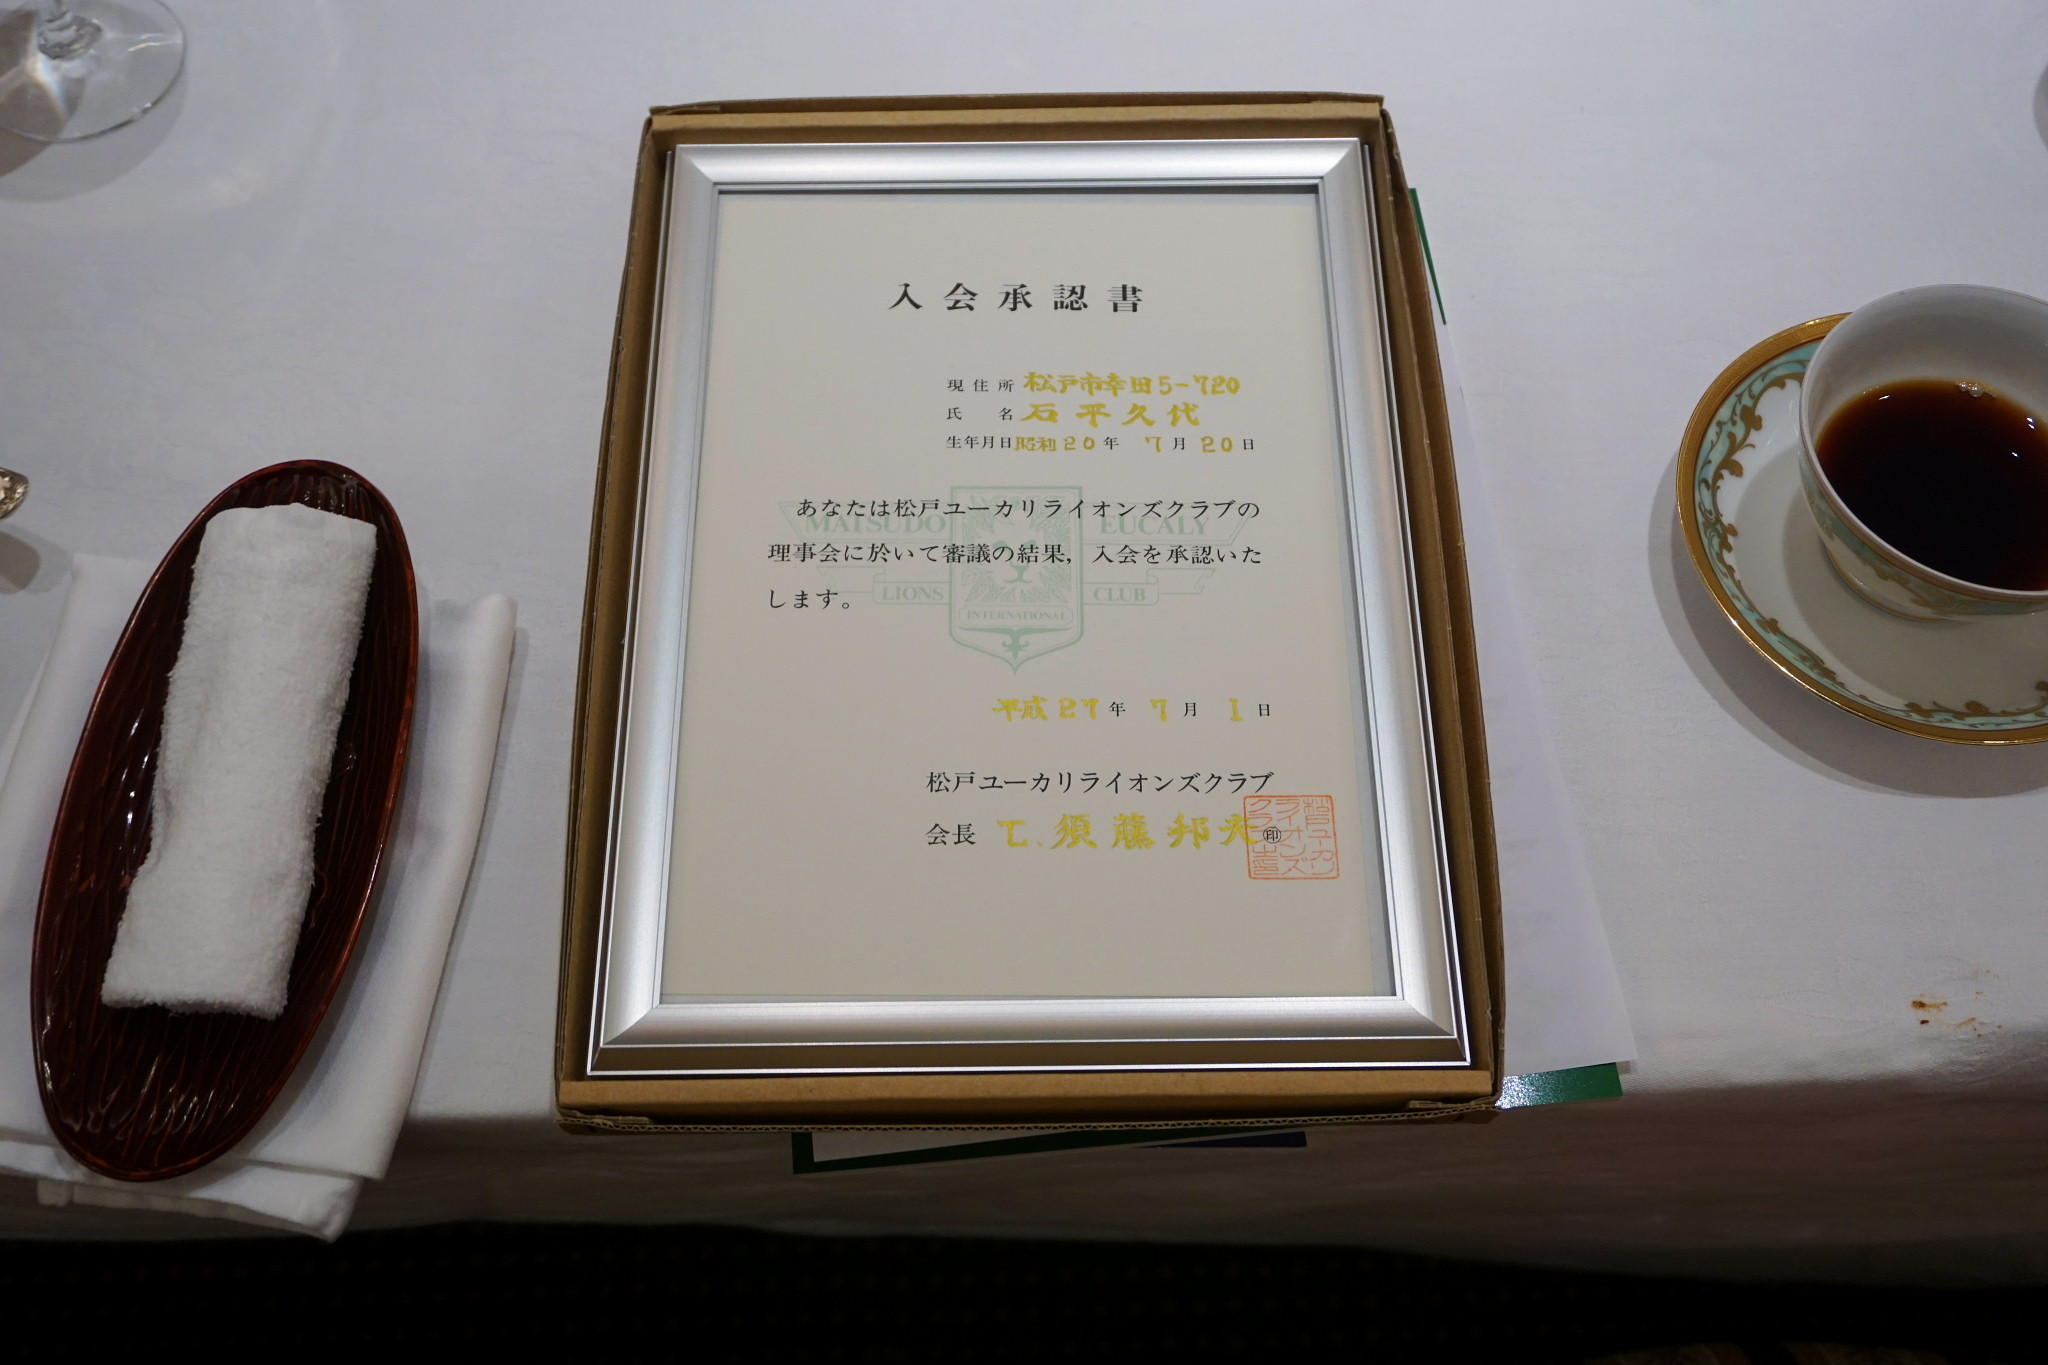 入会承認書
現住所 松戸市幸田5-720
氏名 石平久代
生年月日 昭和20年 7月 20日
あなたは松戸ユーカリライオンズクラブの
理事会に於いて審議の結果，入会を承認いた
します。
MATSUDO EUCALY
LIONS CLUB
INTERNATIONAL
平成27年 7月 1日
松戸ユーカリライオンズクラブ
会長 L.須藤邦夫 ㊞